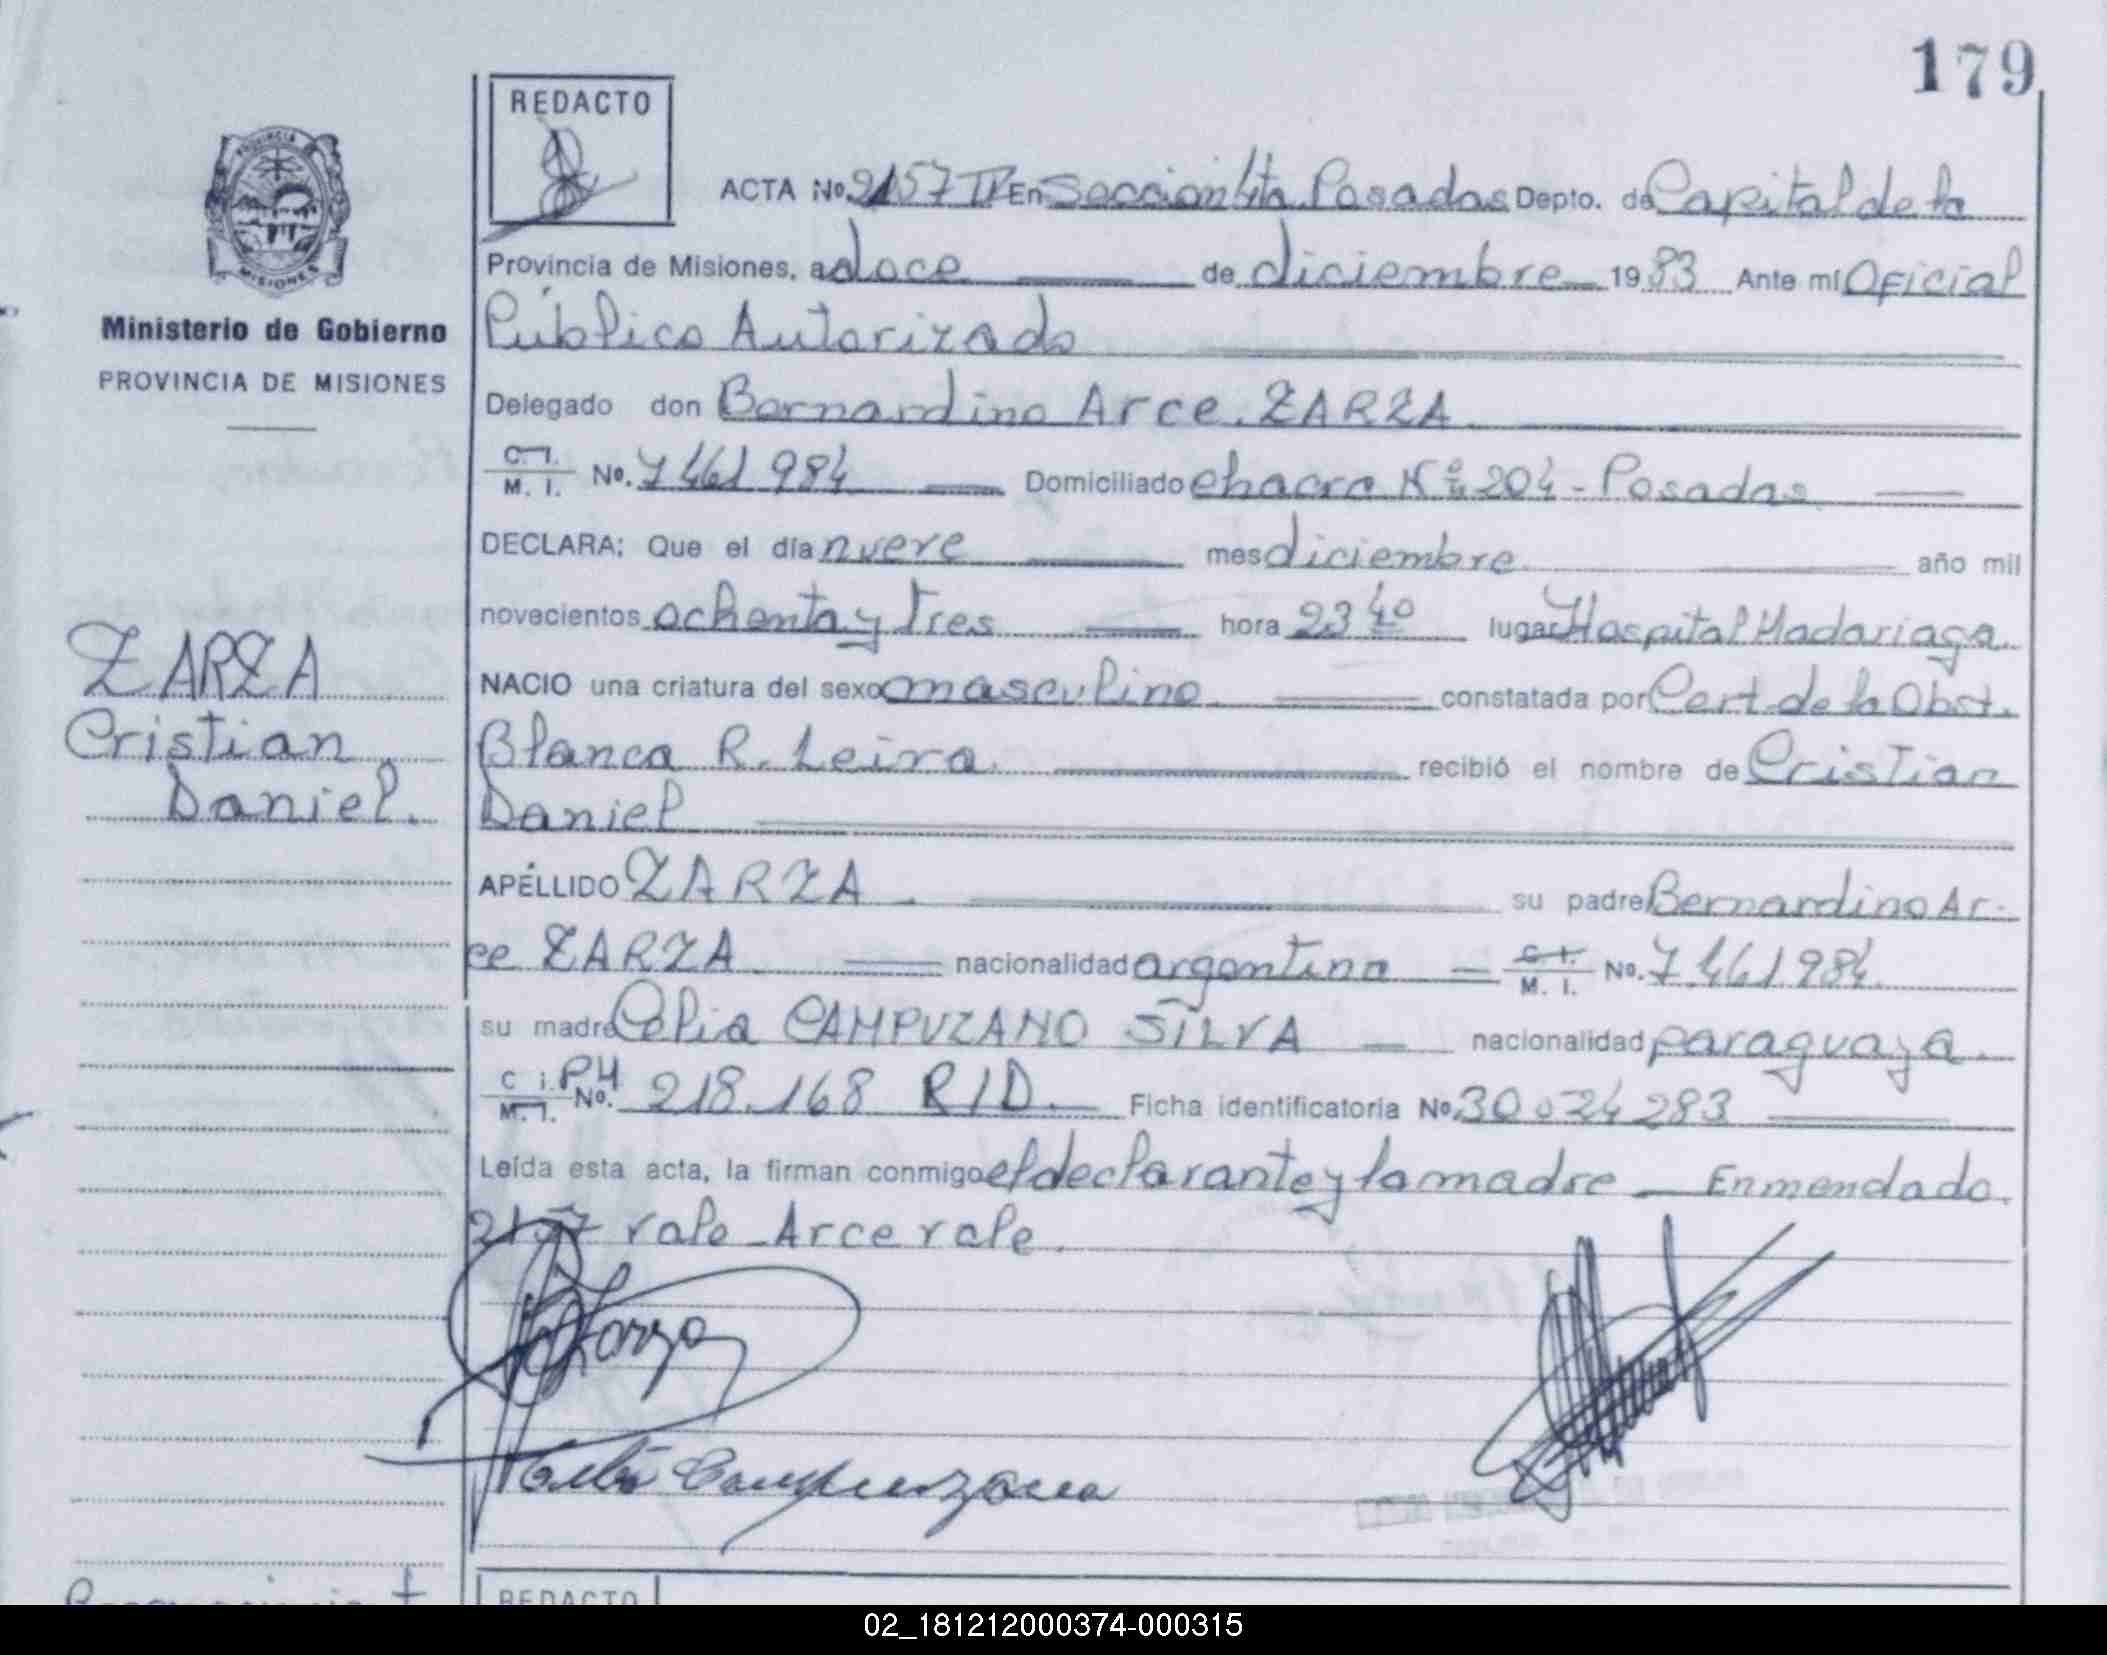 179
REDACTO
ACTA No. 2157 TV En Sección 4ta Posadas Depto. de Capital de la
Provincia de Misiones, a doce de diciembre 1983 Ante mí Oficial
Público Autorizado
Delegado don Bernardino Arce ZARZA
C. I.
M. I. No. 7461984 Domiciliado chacra Nº 204 - Posadas
DECLARA: Que el día nueve mes diciembre año mil
novecientos ochenta y tres hora 23 40 lugar Hospital Madariaga
NACIO una criatura del sexo masculino constatada por Cert. de la Obst.
Blanca R. Leiva recibió el nombre de Cristian
Daniel
APELLIDO ZARZA su padre Bernardino Ar-
ce ZARZA nacionalidad argentina C. I. M. I. No. 7.461.984
su madre Celia CAMPUZANO SILVA nacionalidad paraguaya
C. I. M. I. No. PH 218.168 RID. Ficha identificatoria No 30034283
Leída esta acta, la firman conmigo el declarante y la madre Enmendado
2157 vale - Arce vale.
Zarza
Celia Campuzano
PROVINCIA
MISIONES
Ministerio de Gobierno
PROVINCIA DE MISIONES
ZARZA
Cristian
Daniel.
REDACTO
02_181212000374-000315